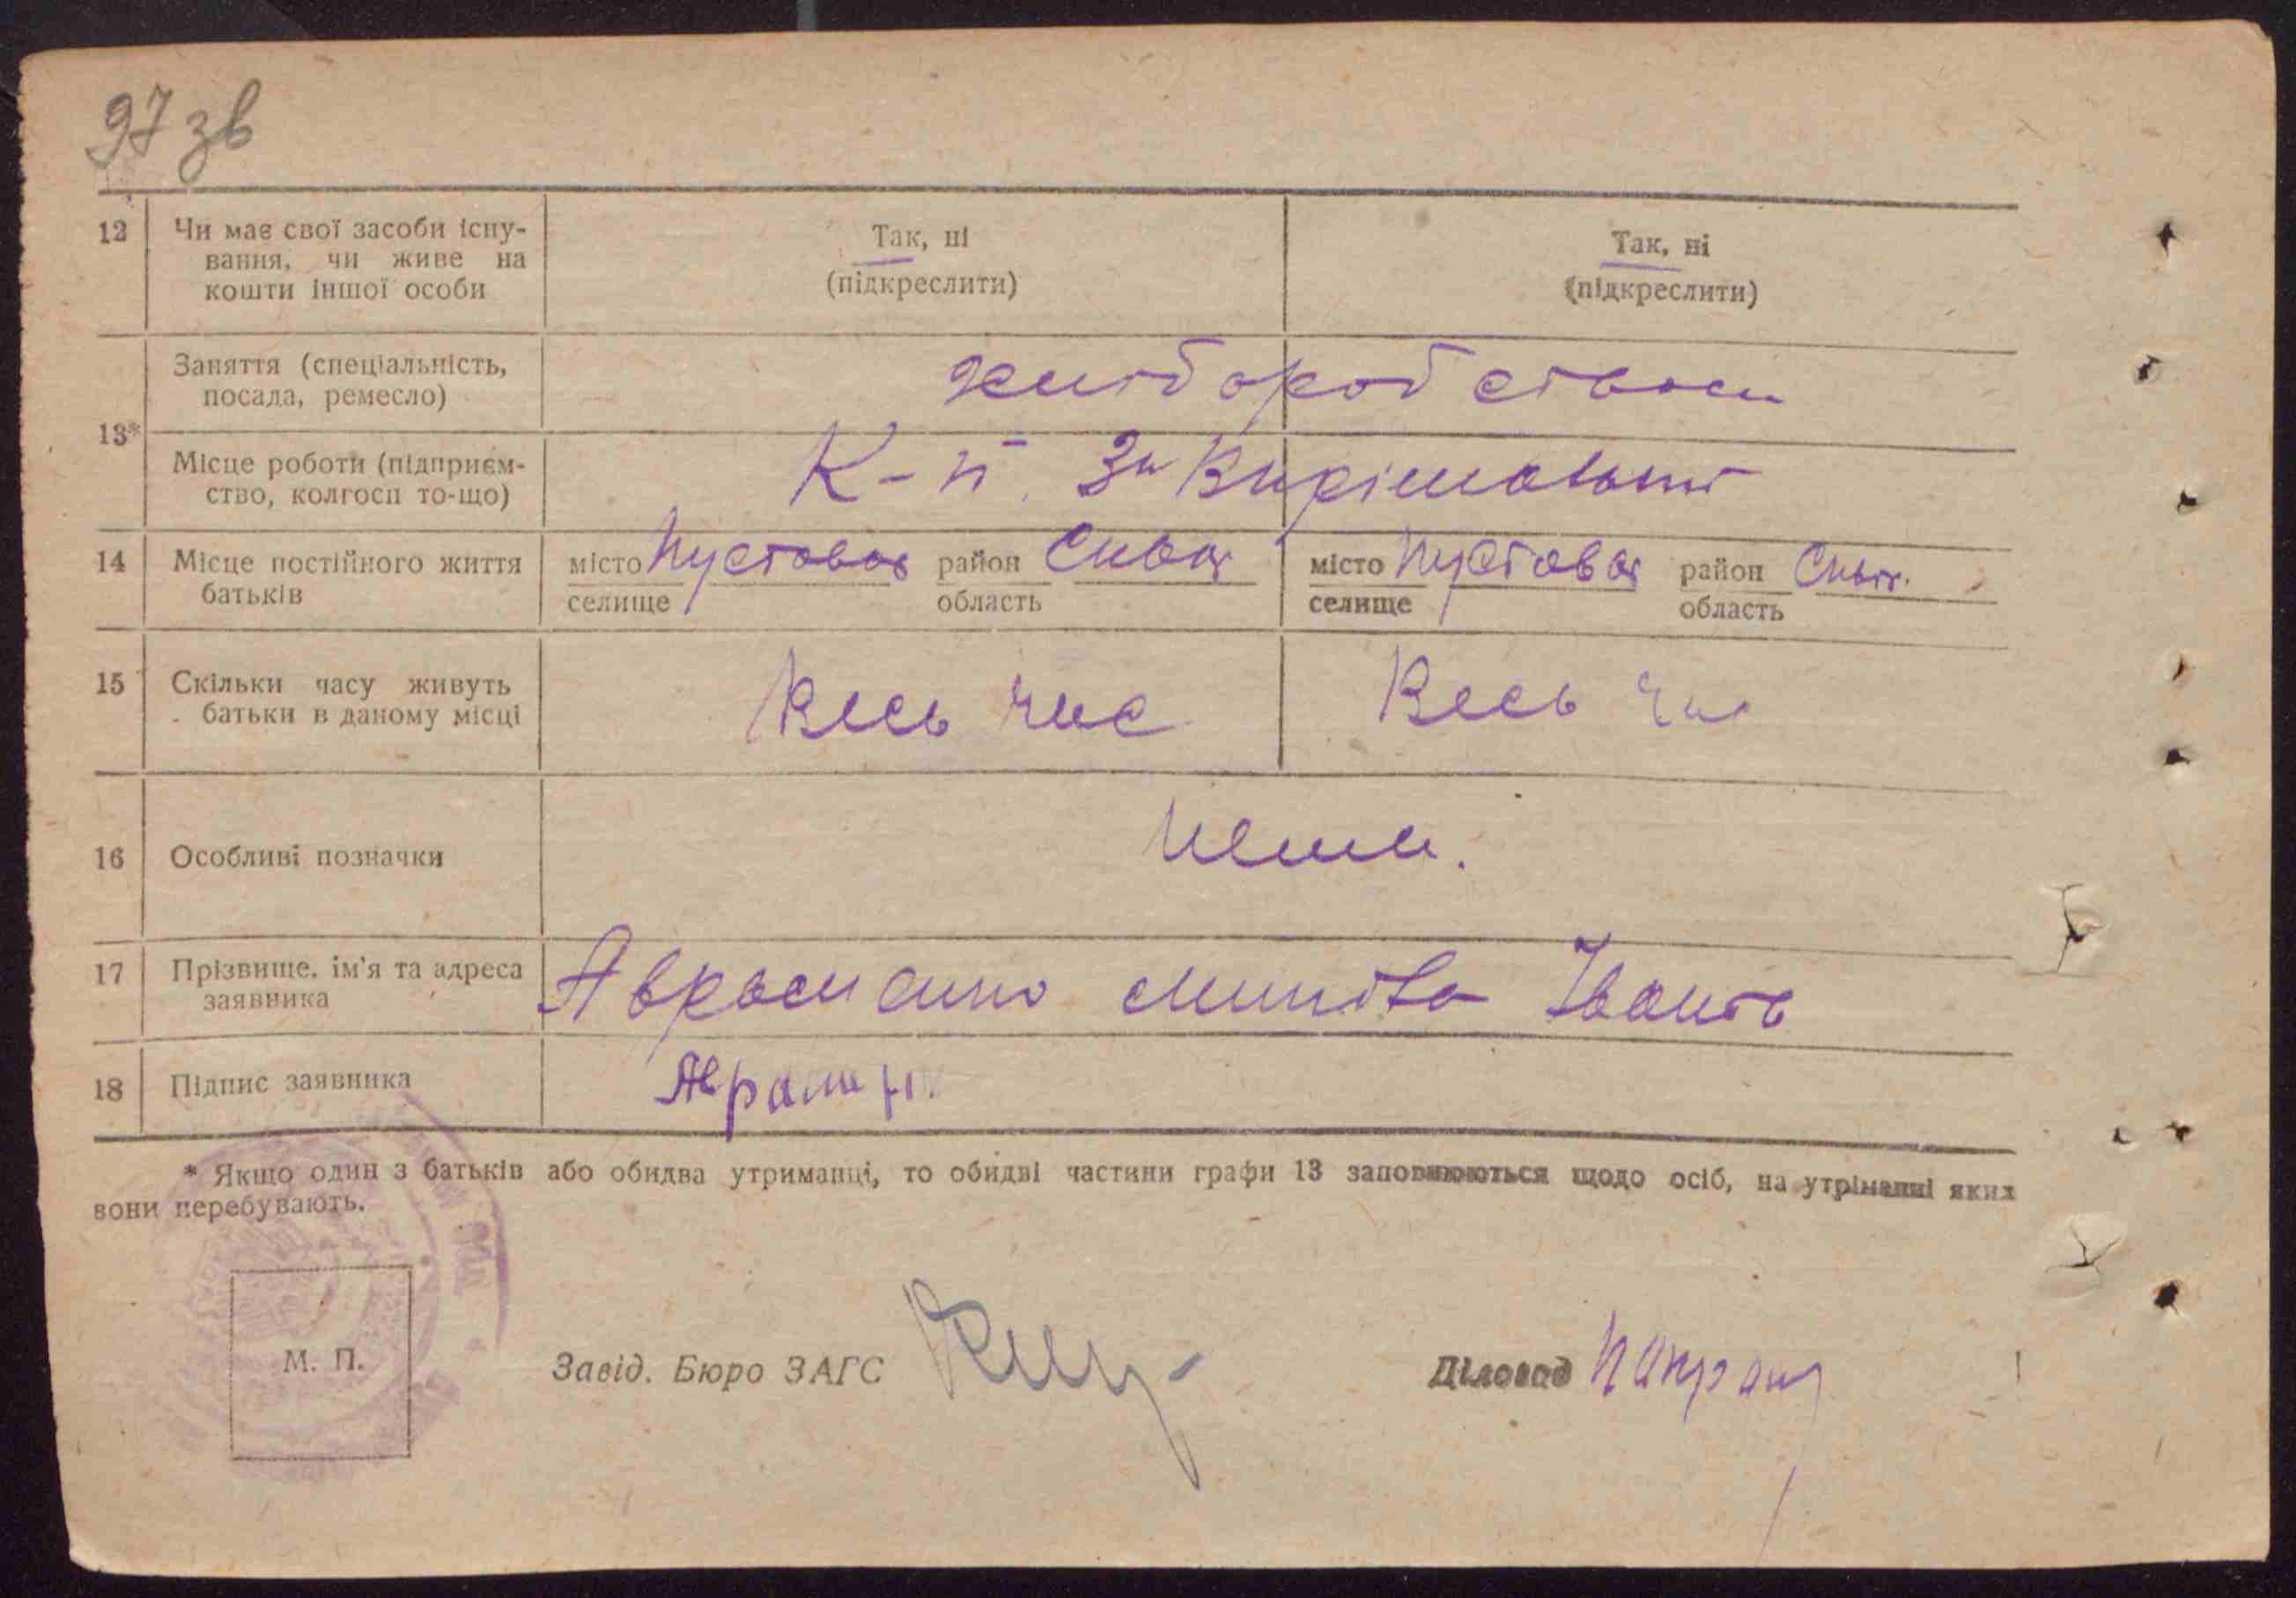 97 зв
12 Чи має свої засоби існу-
вання, чи живе на
кошти іншої особи
Так, ні
(підкреслити)
Так, ні
(підкреслити)
13*
Заняття (спеціальність,
посада, ремесло)
хліборобством
Місце роботи (підприєм-
ство, колгосп то-що)
К-п За
14 Місце постійного життя
батьків
місто Пустовая район Сквир
селище область
місто Пустовая район Сквир.
селище область
15 Скільки часу живуть
батьки в даному місці
Весь час
Весь час
16 Особливі позначки
Нема.
17 Прізвище, ім'я та адреса
заявника
18 Підпис заявника
* Якщо один з батьків або обидва утриманці, то обидві частини графи 13 заповнюються щодо осіб, на утріманні яких
вони перебувають.
М. П.
Завід. Бюро ЗАГС
Діловод